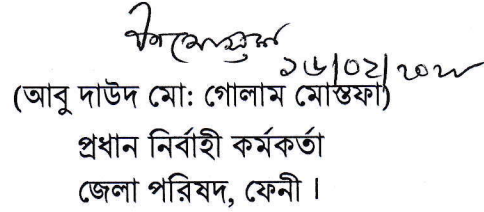 (আবু দাউদ মো: গোলাম মোস্তফা)
প্রধান নির্বাহী কর্মকর্তা
জেলা পরিষদ, ফেনী ।